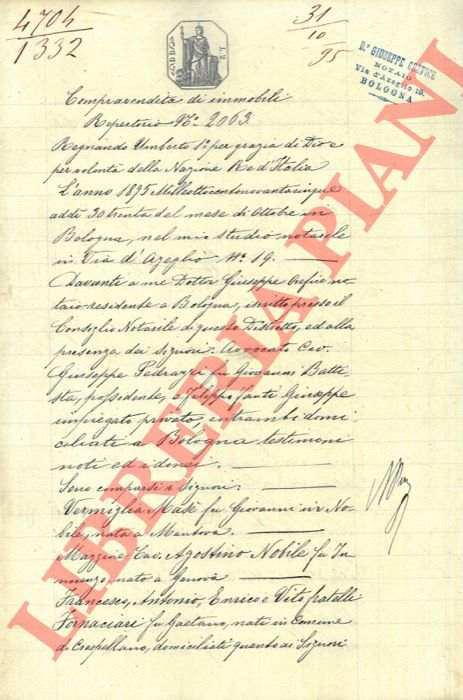 4704
1332
31
10
95
Dr GIUSEPPE OREFICE
NOTAIO
Via d'Azeglio 19.
BOLOGNA
Compravendita di immobili
Repertorio No. 2063
Regnando Umberto 1o per grazia di Dio e
per volontà della Nazione Re d'Italia
L'anno 1895 Milleottocentonovantacinque
addì 30 trenta del mese di Ottobre in
Bologna, nel mio studio notarile
in Via d'Azeglio No. 19.
Davanti a me Dottor Giuseppe Orefice no-
taio residente a Bologna, iscritto presso il
Consiglio Notarile di questo Distretto, ed alla
presenza dei Signori: Avvocato Cav.
Giuseppe Pedrazzi fu Giovanni Batti-
sta, possidente, e Filippo Janti Giuseppe
impiegato privato, entrambi domi-
ciliati a Bologna testimoni
noti ed idonei.
Sono comparsi i Signori:
Vermiglia Masè fu Giovanni in No-
bile, nata a Mantova.
Mazzino Cav. Agostino Nobile fu In-
nocenzo, nato a Genova
Francesco, Antonio, Enrico e Vito fratelli
Fornaciari fu Gaetano, nati in Comune
di Crespellano, domiciliati quanto ai Signori
LIBRERIA PIANI